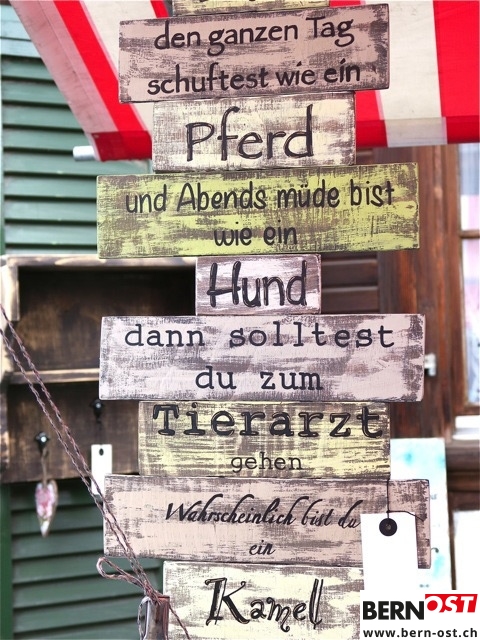 den ganzen Tag
schuftest wie ein
Pferd
und Abends müde bist
wie ein
Hund
dann solltest
du zum
Tierarzt
gehen
Wahrscheinlich bist du
ein
Kamel
BERNOST
www.bern-ost.ch